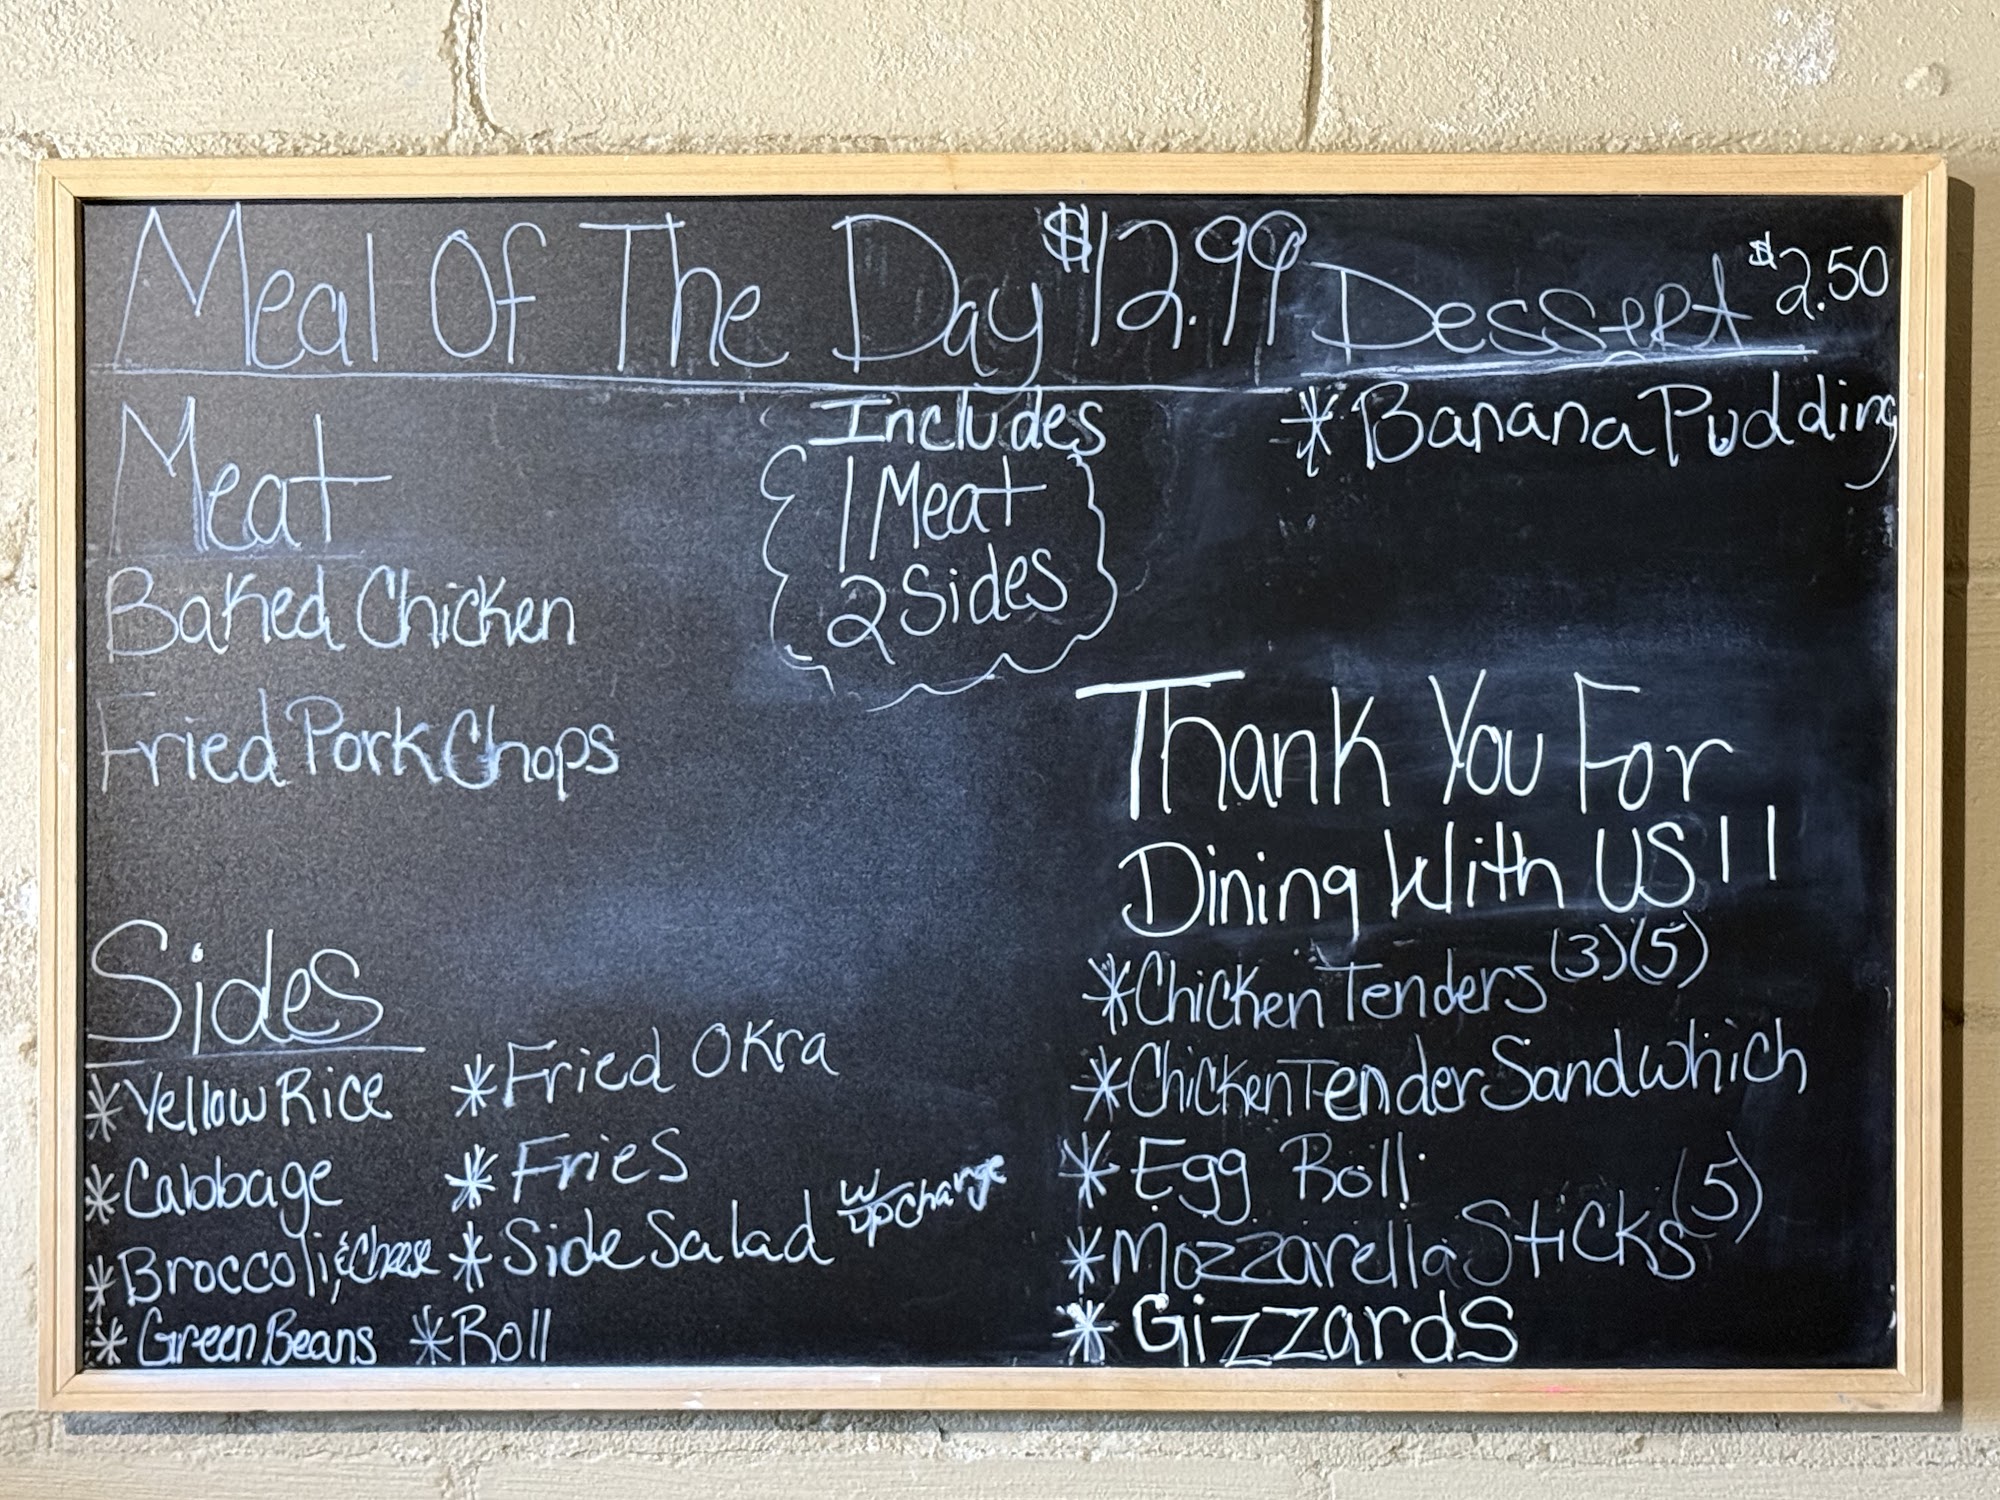 Meal Of The Day $12.99
Meat
Baked Chicken
Fried Pork Chops
Includes
1 Meat
2 Sides
Sides
* Yellow Rice
* Cabbage
* Broccoli & Cheese
* Green Beans
* Fried Okra
* Fries
* Side Salad w upcharge
* Roll
Dessert $2.50
* Banana Pudding
Thank You For
Dining With US!!
* Chicken Tenders (3)(5)
* Chicken Tender Sandwhich
* Egg Roll
* Mozzarella Sticks (5)
* Gizzards